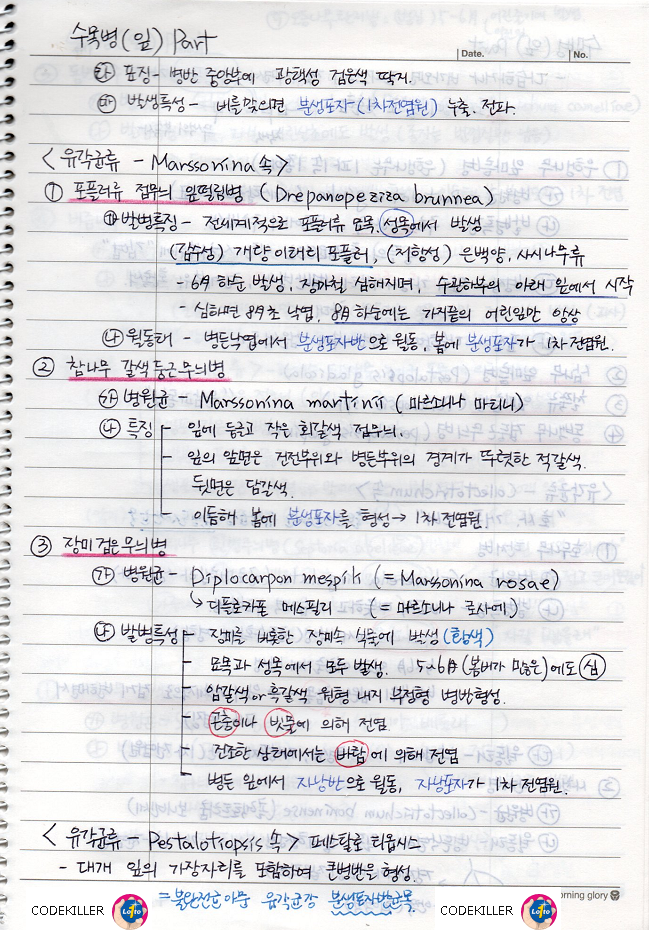 수목병(잎) Part
Date. No.
㉰ 표징- 병반 중앙부에 광택성 검은색 딱지.
㉱ 발생특성- 비를맞으면 분생포자(1차전염원) 누출. 전파.
<유각균류 - Marssonina속>
① 포플러류 점무늬 잎떨림병 (Drepanopeziza brunnea)
㉮ 발병특징- 전세계적으로 포플러류 묘목, 성목에서 발생
(감수성) 개량이태리포플러, (저항성) 은백양, 사시나무류
- 6月 하순 발생, 장마철 심해지며 수관하부의 아래 잎에서 시작
- 심하면 8月초 낙엽. 8月하순에는 가지끝의 어린잎만 앙상
㉯ 월동태 - 병든낙엽에서 분생포자반으로 월동, 봄에 분생포자가 1차전염원.
② 참나무 갈색둥근무늬병
㉮ 병원균- Marssonina martinii (마르소니나 마티니)
㉯ 특징 - 잎에 둥글고 작은 회갈색 점무늬.
- 잎의 앞면은 건전부위와 병든부위의 경계가 뚜렷한 적갈색.
뒷면은 담갈색.
- 이듬해 봄에 분생포자를 형성→ 1차전염원.
③ 장미검은무늬병
㉮ 병원균- Diplocarpon mespili (= Marssonina rosae)
↳ 디플로카폰 메스필리 (= 마르소니나 로사에)
㉯ 발병특성 - 장미를 비롯한 장미속 식물에 발생 (흑색)
- 묘목과 성목에서 모두 발생. 5~6月 (봄비가 많은)에도 심
- 암갈색or흑갈색 원형 내지 부정형 병반형성.
- 곤충이나 빗물에 의해 전염.
- 건조한 상태에서는 바람에 의해 전염
- 병든 잎에서 자낭반으로 월동, 자낭포자가 1차전염원.
<유각균류 - Pestalotiopsis속> 페스탈로티옵시스
- 대개 잎의 가장자리를 포함하여 큰병반을 형성.
=불완전균아문 유각균강 분생포자반균목.
orning glory
CODEKILLER Lotto CODEKILLER Lotto